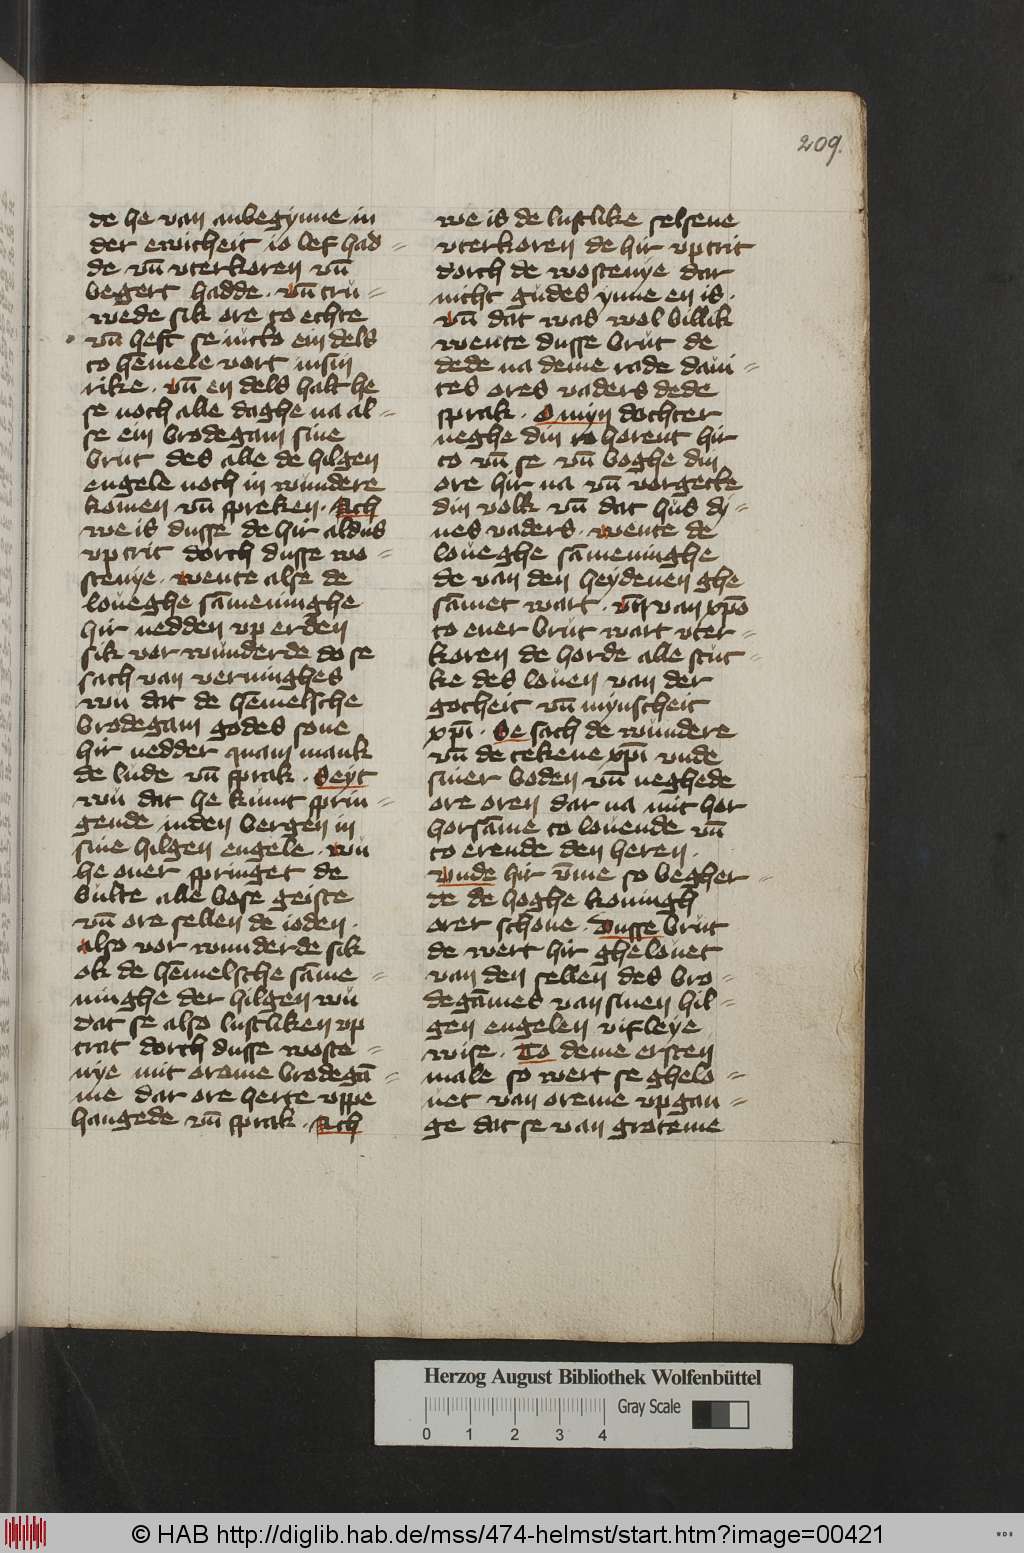 209.
de he van anbegynne in
der ewicheit io lef had=
de vn̄ vterkoren vn̄
begert hadde · vn̄ trů=
wede sik ore to echte
vn̄ heft se nůcko ein dels
to hēmele vort in sin
rike · vn̄ en dels halt he
se noch alle daghe na al=
se ein brodegam sine
brůt des alle de hilgen
engele noch in wůndere
komen vn̄ spreken · Ach
we is dusse de hir aldus
vp trit dorch dusse wo=
stenye · wente alse de
loueghe sāmeninghe
hir nedden vp erden
sik vor wůnderde do se
sach van verninghes
wů dat de hēmelsche
brodegam godes sone
hir nedder quam mank
de lude vn̄ sprak · Seyt
wů dat he kůmt sprin=
gende in den bergen in
sine hilgen engele · wů
he ouer springet de
bůlte alle bose geiste
vn̄ ore sellen de ioden ·
also vor wunderde sik
ok de hēmelsche sāme=
ninghe der hilgen wů
dat se also lustliken vp
trat dorch dusse woste=
nye mit oreme brodegā=
me dar ore herte vppe
hangede vn̄ sprak · Ach
we is de lustlike selsene
vterkoren de hir vp trit
dorch de wostenye dar
nicht gůdes ynne en is ·
vn̄ dat was wol billik
wente dusse brůt de
dede na deme rade daui=
tes ores vaders dede
sprak · O myn dochter
neghe din to horent hir
to vn̄ se vn̄ boghe din
ore hir na vn̄ vorgecke
din volk vn̄ dat hůs dy=
nes vaders · wente de
loueghe sāmeninghe
de van den heydenen ghe
sāmet wart · vn̄ van xp̄o
to ener brůt wart vter=
koren de horde alle stůt=
ke des louen van der
gotheit vn̄ mynscheit
xp̄i · Se sach de wůndere
vn̄ de tekene xp̄i vnde
siner boden vn̄ neghede
ore oren dar na mit hor
horsāme to louende vn̄
to erende den heren ·
vnde hir v̄me so begher=
de de hoghe koningh
orer schone · Dusse brůt
de wert hir ghelouet
van den sellen des bro=
degāmes van sinen hil=
gen engelen vifleye
wise · To deme ersten
male so wert se ghelo=
uet van oreme vpgan=
ge dat se van groteme
Herzog August Bibliothek Wolfenbüttel
Gray Scale
0 1 2 3 4
© HAB http://diglib.hab.de/mss/474-helmst/start.htm?image=00421